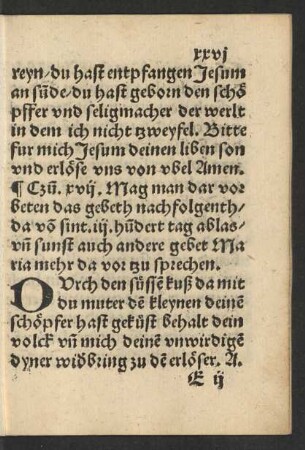 xxvj
reyn/du hast entpfangen Jesum
an sũde/du hast geborn den schö
pffer vnd seligmacher der werlt
in dem ich nicht tzweyfel. Bitte
fur mich Jesum deinen liben son
vnd erlöse vns von vbel Amen.
¶ Czũ. xvij. Mag man dar vor
beten das gebeth nachfolgenth/
da võ sint. iij. hũdert tag ablas/
vñ sunst auch andere gebet Ma
ria mehr da vor tzu sprechen.
DUrch den süssẽ kuß da mit
du muter dẽ kleynen deinẽ
schöpfer hast geküst behalt dein
volck vñ mich deinẽ vnwirdigẽ
dyner widbring zu dẽ erlöser. A.
E ij